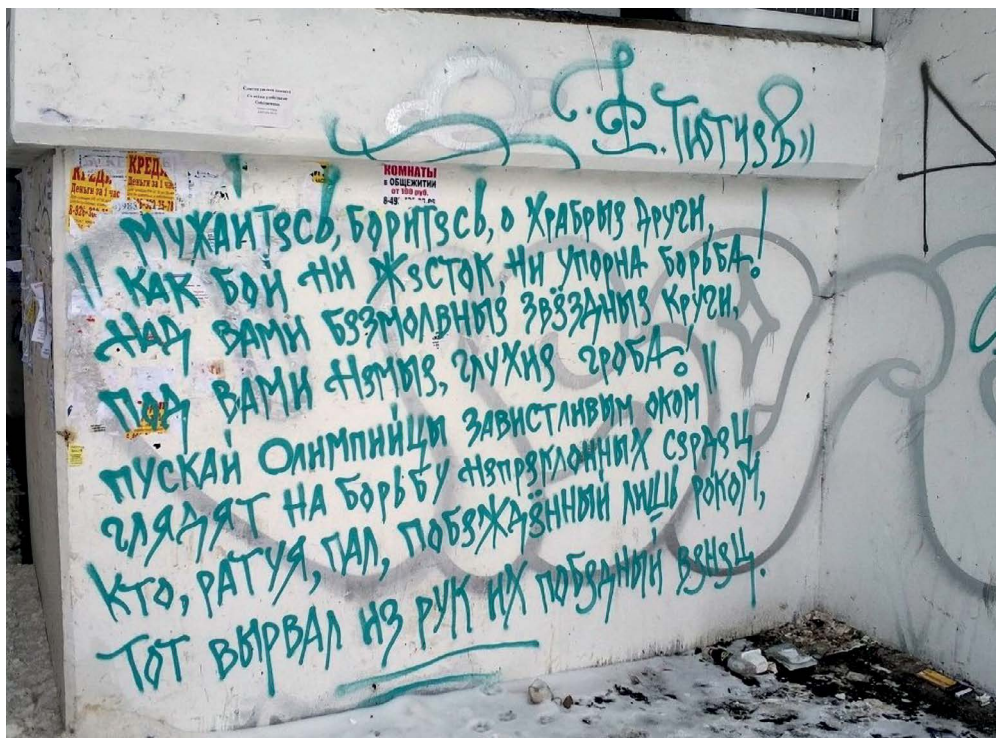 Ф. ТЮТЧЕВ
КРЕДИ
Деньги за 1 час
КРЕД
Деньги за 1 час
КОМНАТЫ
в ОБЩЕЖИТИИ
от 100 руб.
"МУЖАЙТЕСЬ, БОРИТЕСЬ, О ХРАБРЫЕ ДРУГИ,
КАК БОЙ НИ ЖЕСТОК, НИ УПОРНА БОРЬБА!
НАД ВАМИ БЕЗМОЛВНЫЕ ЗВЁЗДНЫЕ КРУГИ,
ПОД ВАМИ НЕМЫЕ, ГЛУХИЕ ГРОБА!"
ПУСКАЙ ОЛИМПИЙЦЫ ЗАВИСТЛИВЫМ ОКОМ
ГЛЯДЯТ НА БОРЬБУ НЕПРЕКЛОННЫХ СЕРДЕЦ
КТО, РАТУЯ, ПАЛ, ПОБЕЖДЁННЫЙ ЛИШЬ РОКОМ,
ТОТ ВЫРВАЛ ИЗ РУК ИХ ПОБЕДНЫЙ ВЕНЕЦ.